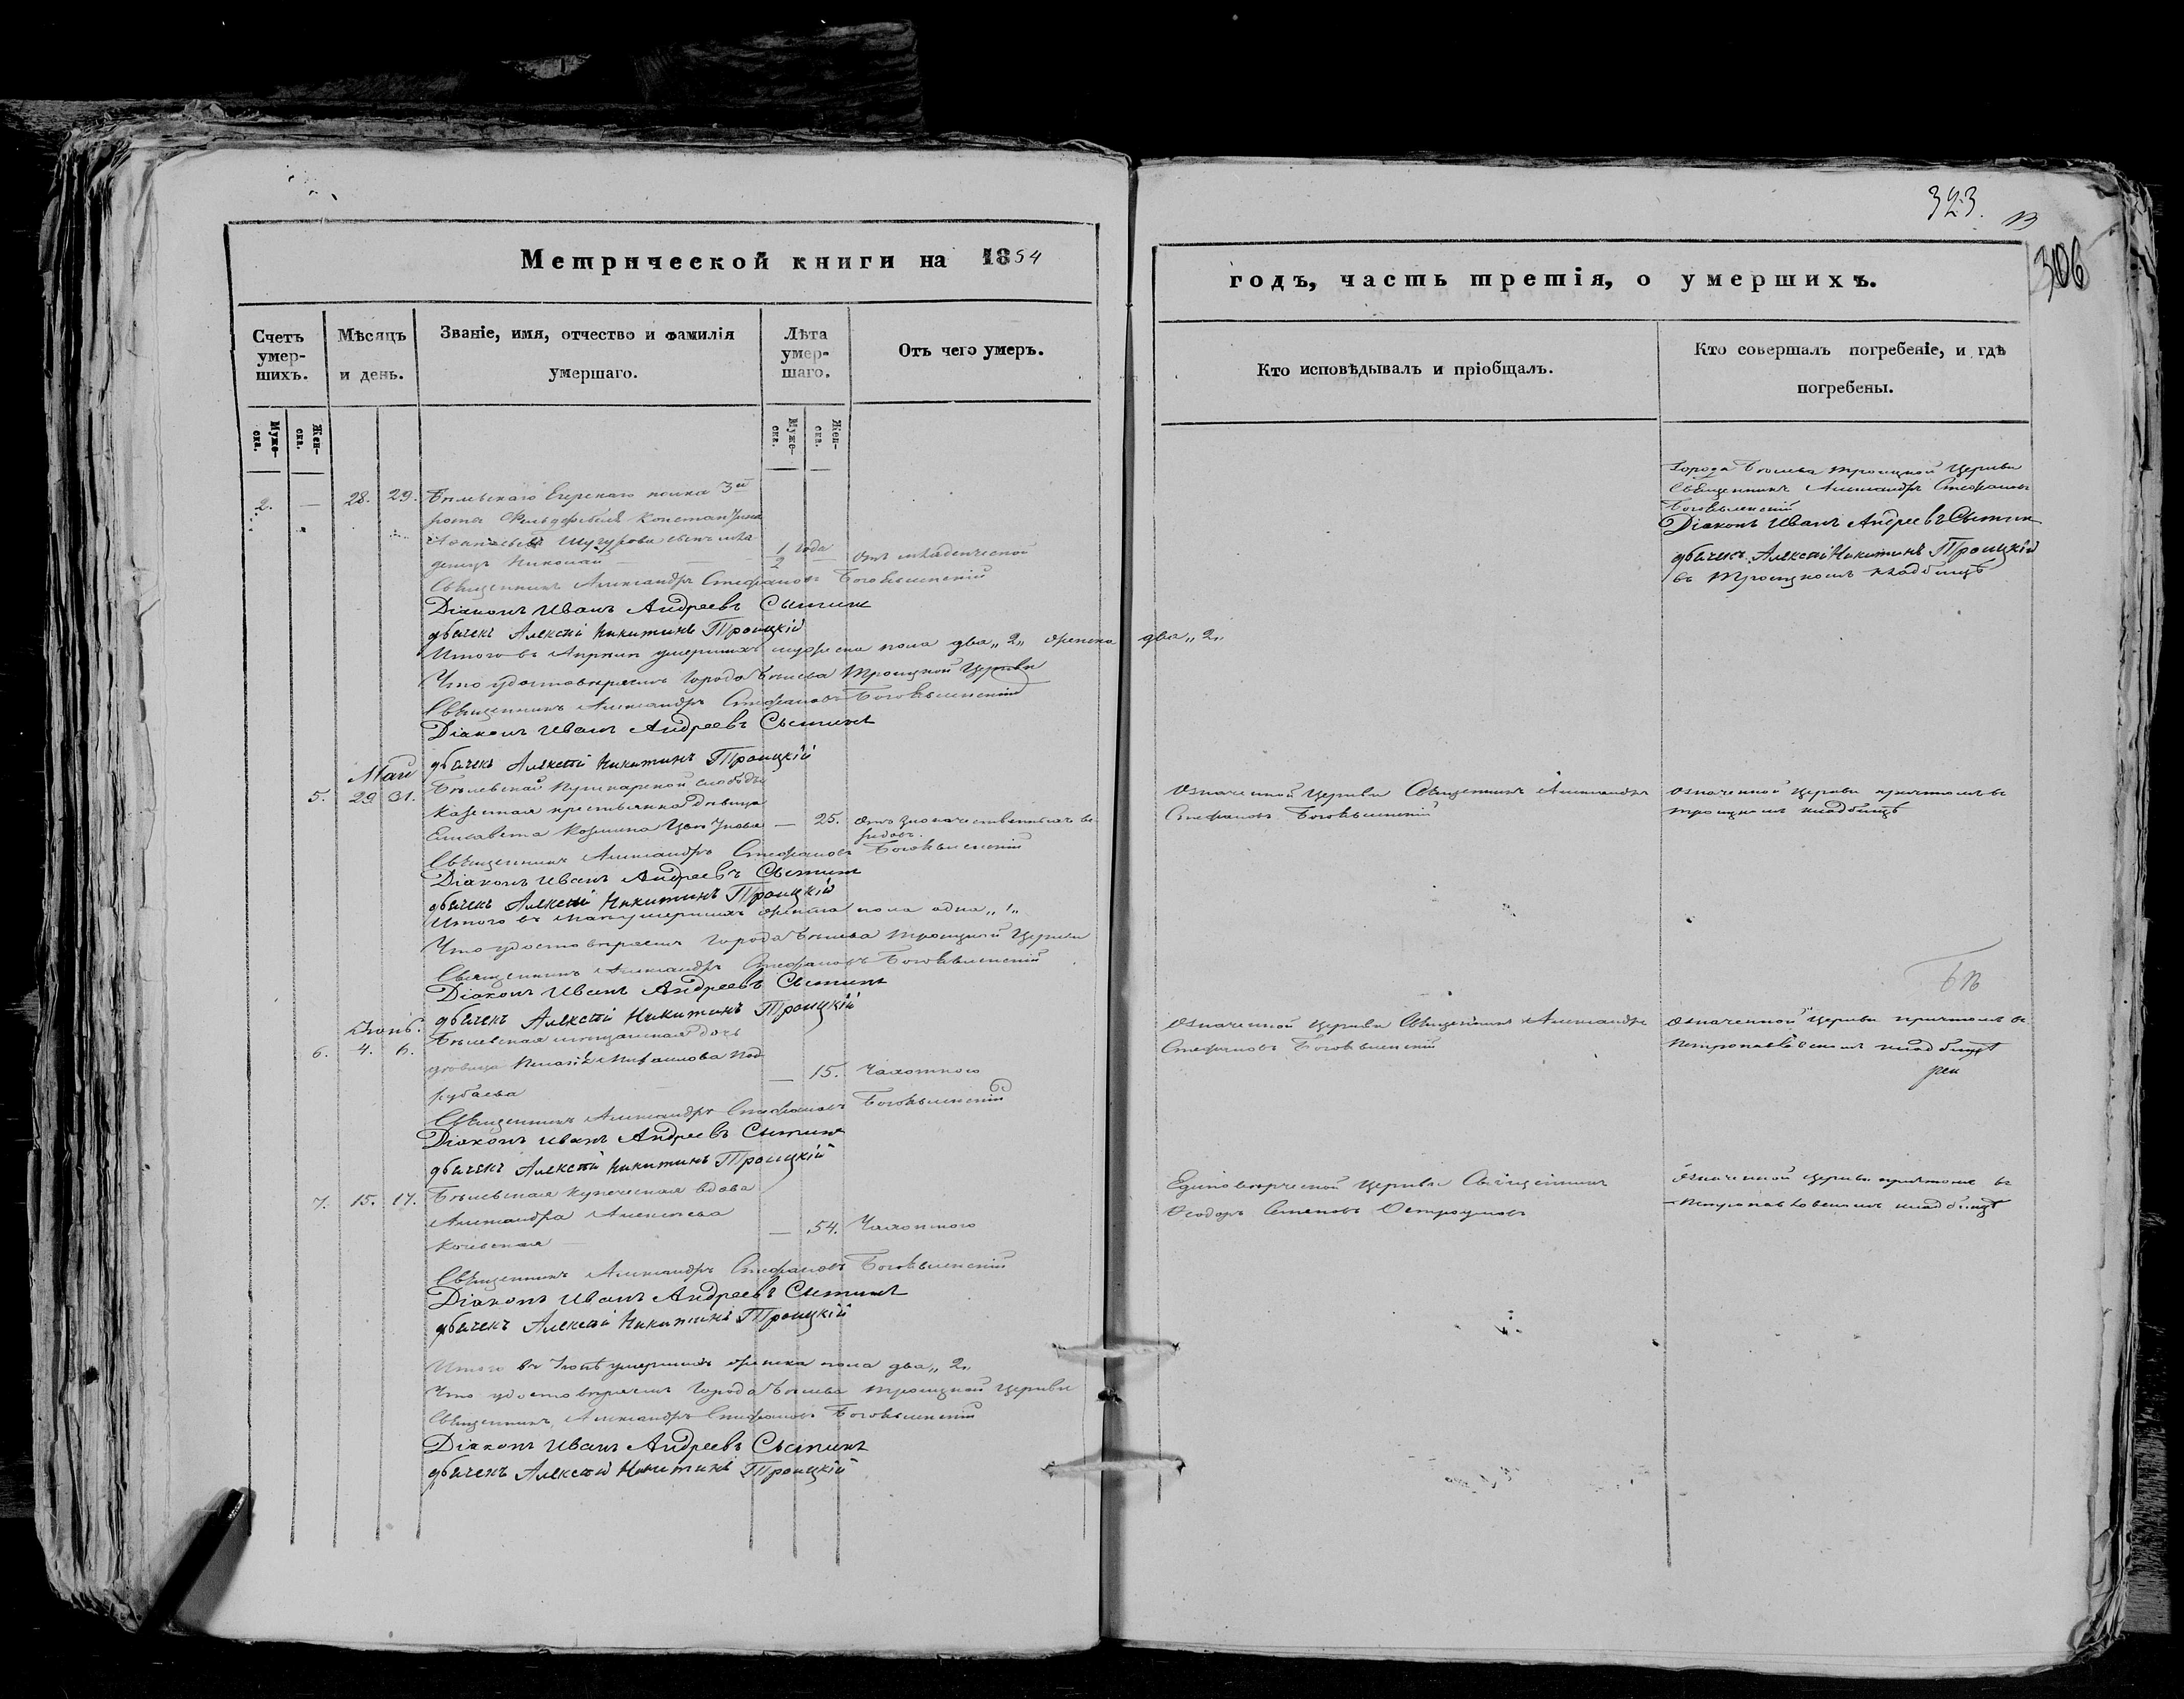 323.
306
Метрической книги на 1854
годъ, часть третія, о умершихъ.
Счетъ умер-шихъ.
Мѣсяцъ и день.
Званіе, имя, отчество и фамилія умершаго.
Лѣта умер-шаго.
Отъ чего умеръ.
Кто исповѣдывалъ и пріобщалъ.
Кто совершалъ погребеніе, и гдѣ погребены.
Муже-ска.
Жен-ска.
Муже-ска.
Жен-ска.
2. — 28. 29. Бѣлевскаго Егерскаго полка 3й
роты Фельдфебеля Константина
сынъ мла
денецъ Николай — 1/2 года — отъ младенческой
Города Бѣлева Троицкой Церкви
Священникъ Александръ Стефановъ
Богоявленскій
Діаконъ Иванъ Андреевъ Сытинъ
дьячекъ Алексѣй Никитинъ Троицкій
въ Троицкомъ кладбищѣ
Священникъ Александръ Стефановъ Богоявленскій
Діаконъ Иванъ Андреевъ Сытинъ
дьячекъ Алексѣй Никитинъ Троицкій
Итого въ Апрѣлѣ умершихъ мужеска пола два „2„ женска два „2„
Что удостовѣряемъ Города Бѣлева Троицкой Церкви
Священникъ Александръ Стефановъ Богоявленскій
Діаконъ Иванъ Андреевъ Сытинъ
дьячекъ Алексѣй Никитинъ Троицкій
Май
5. 29 31. Бѣлевской Пушкарской слободы
казенная крестьянка дѣвица
Елисавета Козмина — 25.
Означенной Церкви Священникъ Александръ
Стефановъ Богоявленскій
Означенной Церкви причтомъ въ
Троицкомъ кладбищѣ
Священникъ Александръ Стефановъ Богоявленскій
Діаконъ Иванъ Андреевъ Сытинъ
дьячекъ Алексѣй Никитинъ Троицкій
Итого въ маѣ умершихъ женска пола одна „1„
Что удостовѣряемъ Города Бѣлева Троицкой Церкви
Священникъ Александръ Стефановъ Богоявленскій
Діаконъ Иванъ Андреевъ Сытинъ
дьячекъ Алексѣй Никитинъ Троицкій
Іюнь.
6. 4. 6. Бѣлевская мѣщанская дочь
дѣвица Михаилова Под
рубаева — 15. Чахоткою
Означенной Церкви Священникъ Александръ
Стефановъ Богоявленскій
Означенной Церкви причтомъ въ
Петропавловскомъ кладбищѣ
Священникъ Александръ Стефановъ Богоявленскій
Діаконъ Иванъ Андреевъ Сытинъ
дьячекъ Алексѣй Никитинъ Троицкій
7. 15. 17. Бѣлевская купеческая вдова
Александра Алексѣева
— 54. Чахоткою
Единовѣрческой Церкви Священникъ
Ѳеодоръ Семеновъ Остроумовъ
Означенной Церкви причтомъ въ
Петропавловскомъ кладбищѣ
Священникъ Александръ Стефановъ Богоявленскій
Діаконъ Иванъ Андреевъ Сытинъ
дьячекъ Алексѣй Никитинъ Троицкій
Итого въ Іюнѣ умершихъ женска пола два „2„
Что удостовѣряемъ Города Бѣлева Троицкой Церкви
Священникъ Александръ Стефановъ Богоявленскій
Діаконъ Иванъ Андреевъ Сытинъ
дьячекъ Алексѣй Никитинъ Троицкій